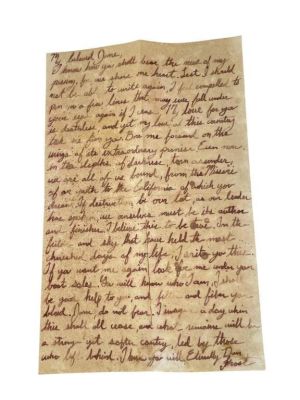 My beloved June,
I know how you shall bear the news of my
passing, for we share one heart. Lest I should
not be able to write again, I feel compelled to
pen you a few lines that may ever fall under
your eyes again if I am. My love for you
is deathless and yet my love of this country
take me from you. Bore me forward on the
wings of its extraordinary promise. Even now,
in the depths of darkness, torn asunder,
we are all of us bound, from the Maine
of an oath to the California of which you
dream. If destruction be our lot, as our leader
has spoken, we ourselves must be its author
and finisher. I believe this to be true. In the
fields and sky that have held the most
cherished days of my life, I write you this.
If you want me again look for me under your
boot soles. You will know who I am, I shall
be good help to you and filter and fiber your
blood. June, do not fear. I imagine a day when
this shall all cease and what remains will be
a stronger yet softer country, led by those
who left behind. I love you will Eternally